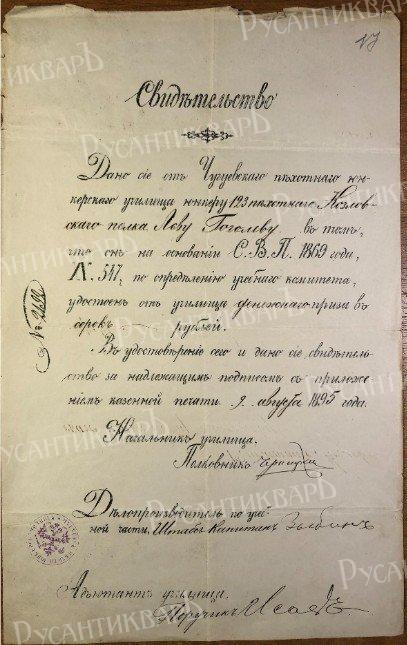 17
Свидѣтельство
Дано сіе отъ Чугуевскаго пѣхотнаго юн-
керскаго училища юнкеру 123 пѣхотнаго Козлов-
скаго полка Льву Гоголеву въ томъ,
что онъ на основаніи С.В.П. 1869 года,
№ 547, по опредѣленію учебнаго комитета,
удостоенъ отъ училища денежнаго приза въ
сорокъ рублей.
Въ удостовѣреніе сего и дано сіе свидѣтель-
ство за надлежащимъ подписомъ съ приложе-
ніемъ казенной печати. 9 августа 1895 года.
№ 2622
Начальникъ училища.
Полковникъ
Дѣлопроизводитель по учеб-
ной части, Штабсъ-Капитанъ Зыбинъ
Адъютантъ училища.
Поручикъ Исаевъ
РУСАНТИКВАРЪ